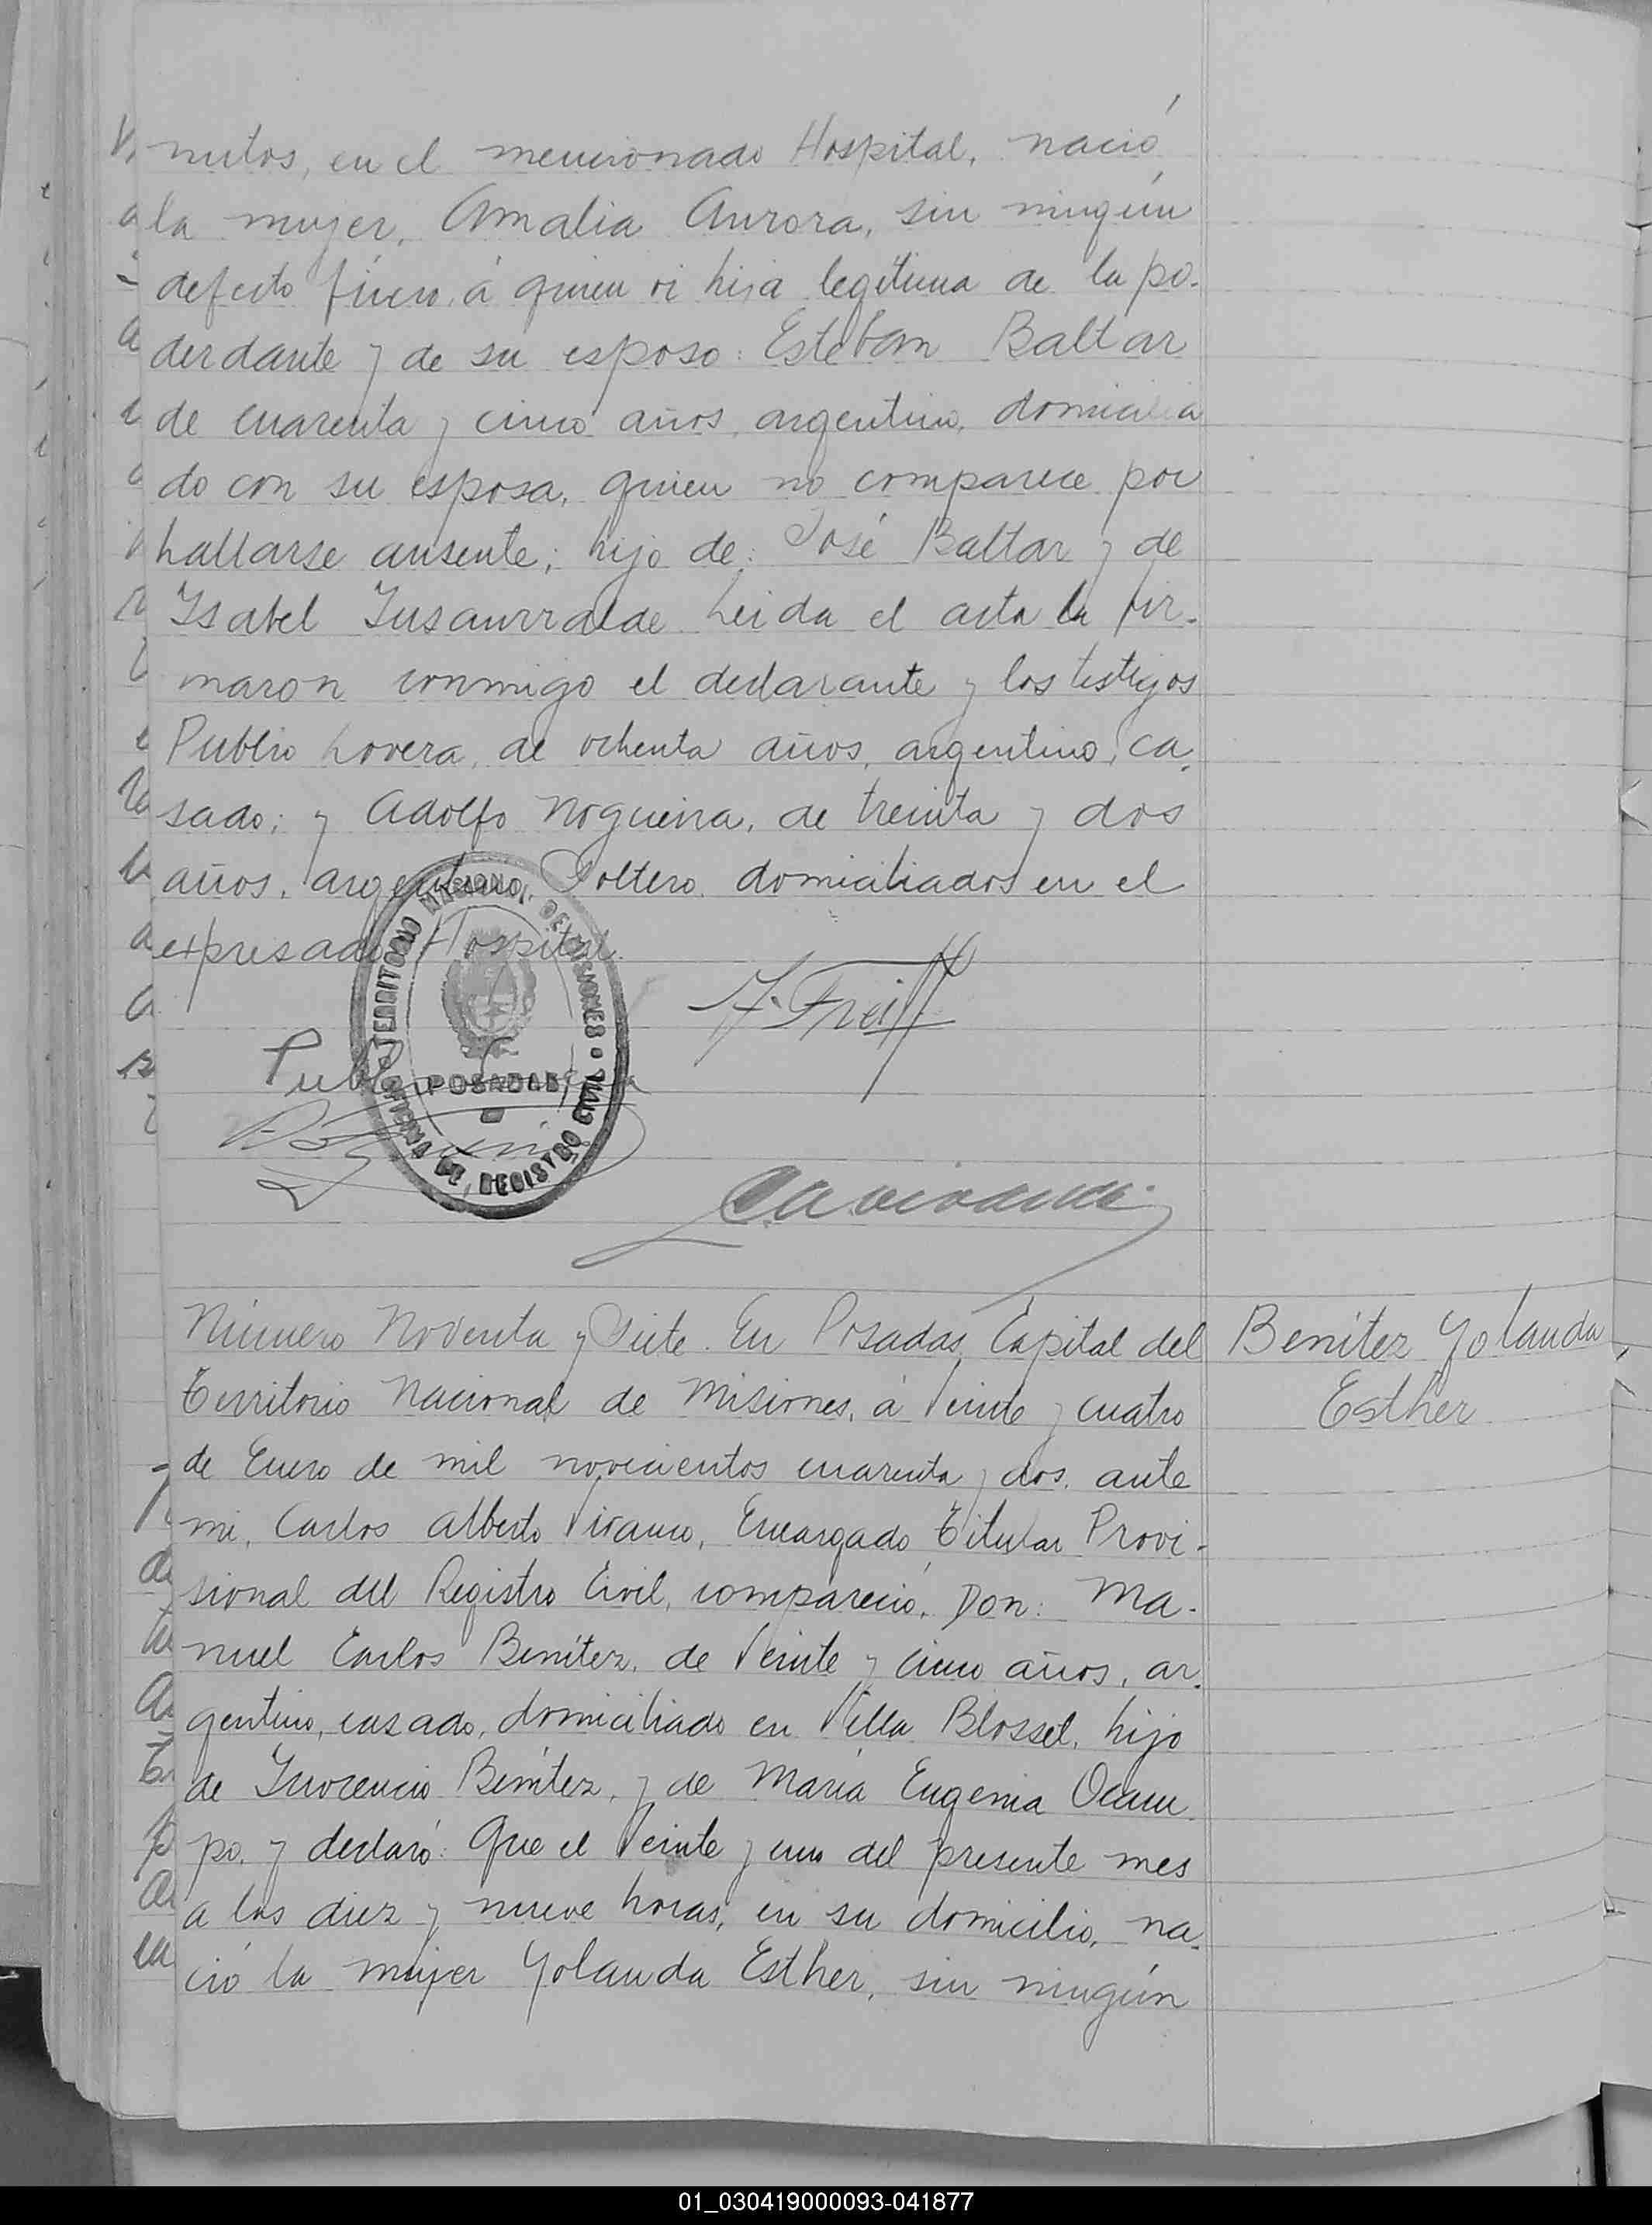 nutos, en el mencionado Hospital, nació
la mujer, Amalia Aurora, sin ningún
defecto físico, á quien vi hija legítima de la po-
derdante y de su esposo: Esteban Baltar
de cuarenta y cinco años, argentino, domicilia
do con su esposa, quien no comparece por
hallarse ausente; hijo de: José Baltar y de
Isabel Insaurralde. Leida el acta la fir-
maron conmigo el declarante y los testigos
Publio Lovera, de ochenta años, argentino, ca-
sado; y Adolfo Nogueira, de treinta y dos
años, argentino, Soltero, domiciliados en el
expresado Hospital.
TERRITORIO NACIONAL DE MISIONES
POSADAS
OFICINA DE REGISTRO CIVIL
Número Noventa y Siete. En Posadas, Capital del
Territorio Nacional de Misiones, á Veinte y cuatro
de Enero de mil novecientos cuarenta y dos, ante
mi, Carlos Alberto Vivanco, Encargado Titular Provi-
sional del Registro Civil, compareció, Don: Ma-
nuel Carlos Benítez, de Veinte y cinco años, ar-
gentino, casado, domiciliado en Villa Blosset, hijo
de Inocencio Benítez, y de María Eugenia Ocam-
po, y declaró: Que el Veinte y uno del presente mes
a las diez y nueve horas, en su domicilio, na-
ció la mujer Yolanda Esther, sin ningún
Benítez Yolanda
Esther
01_030419000093-041877